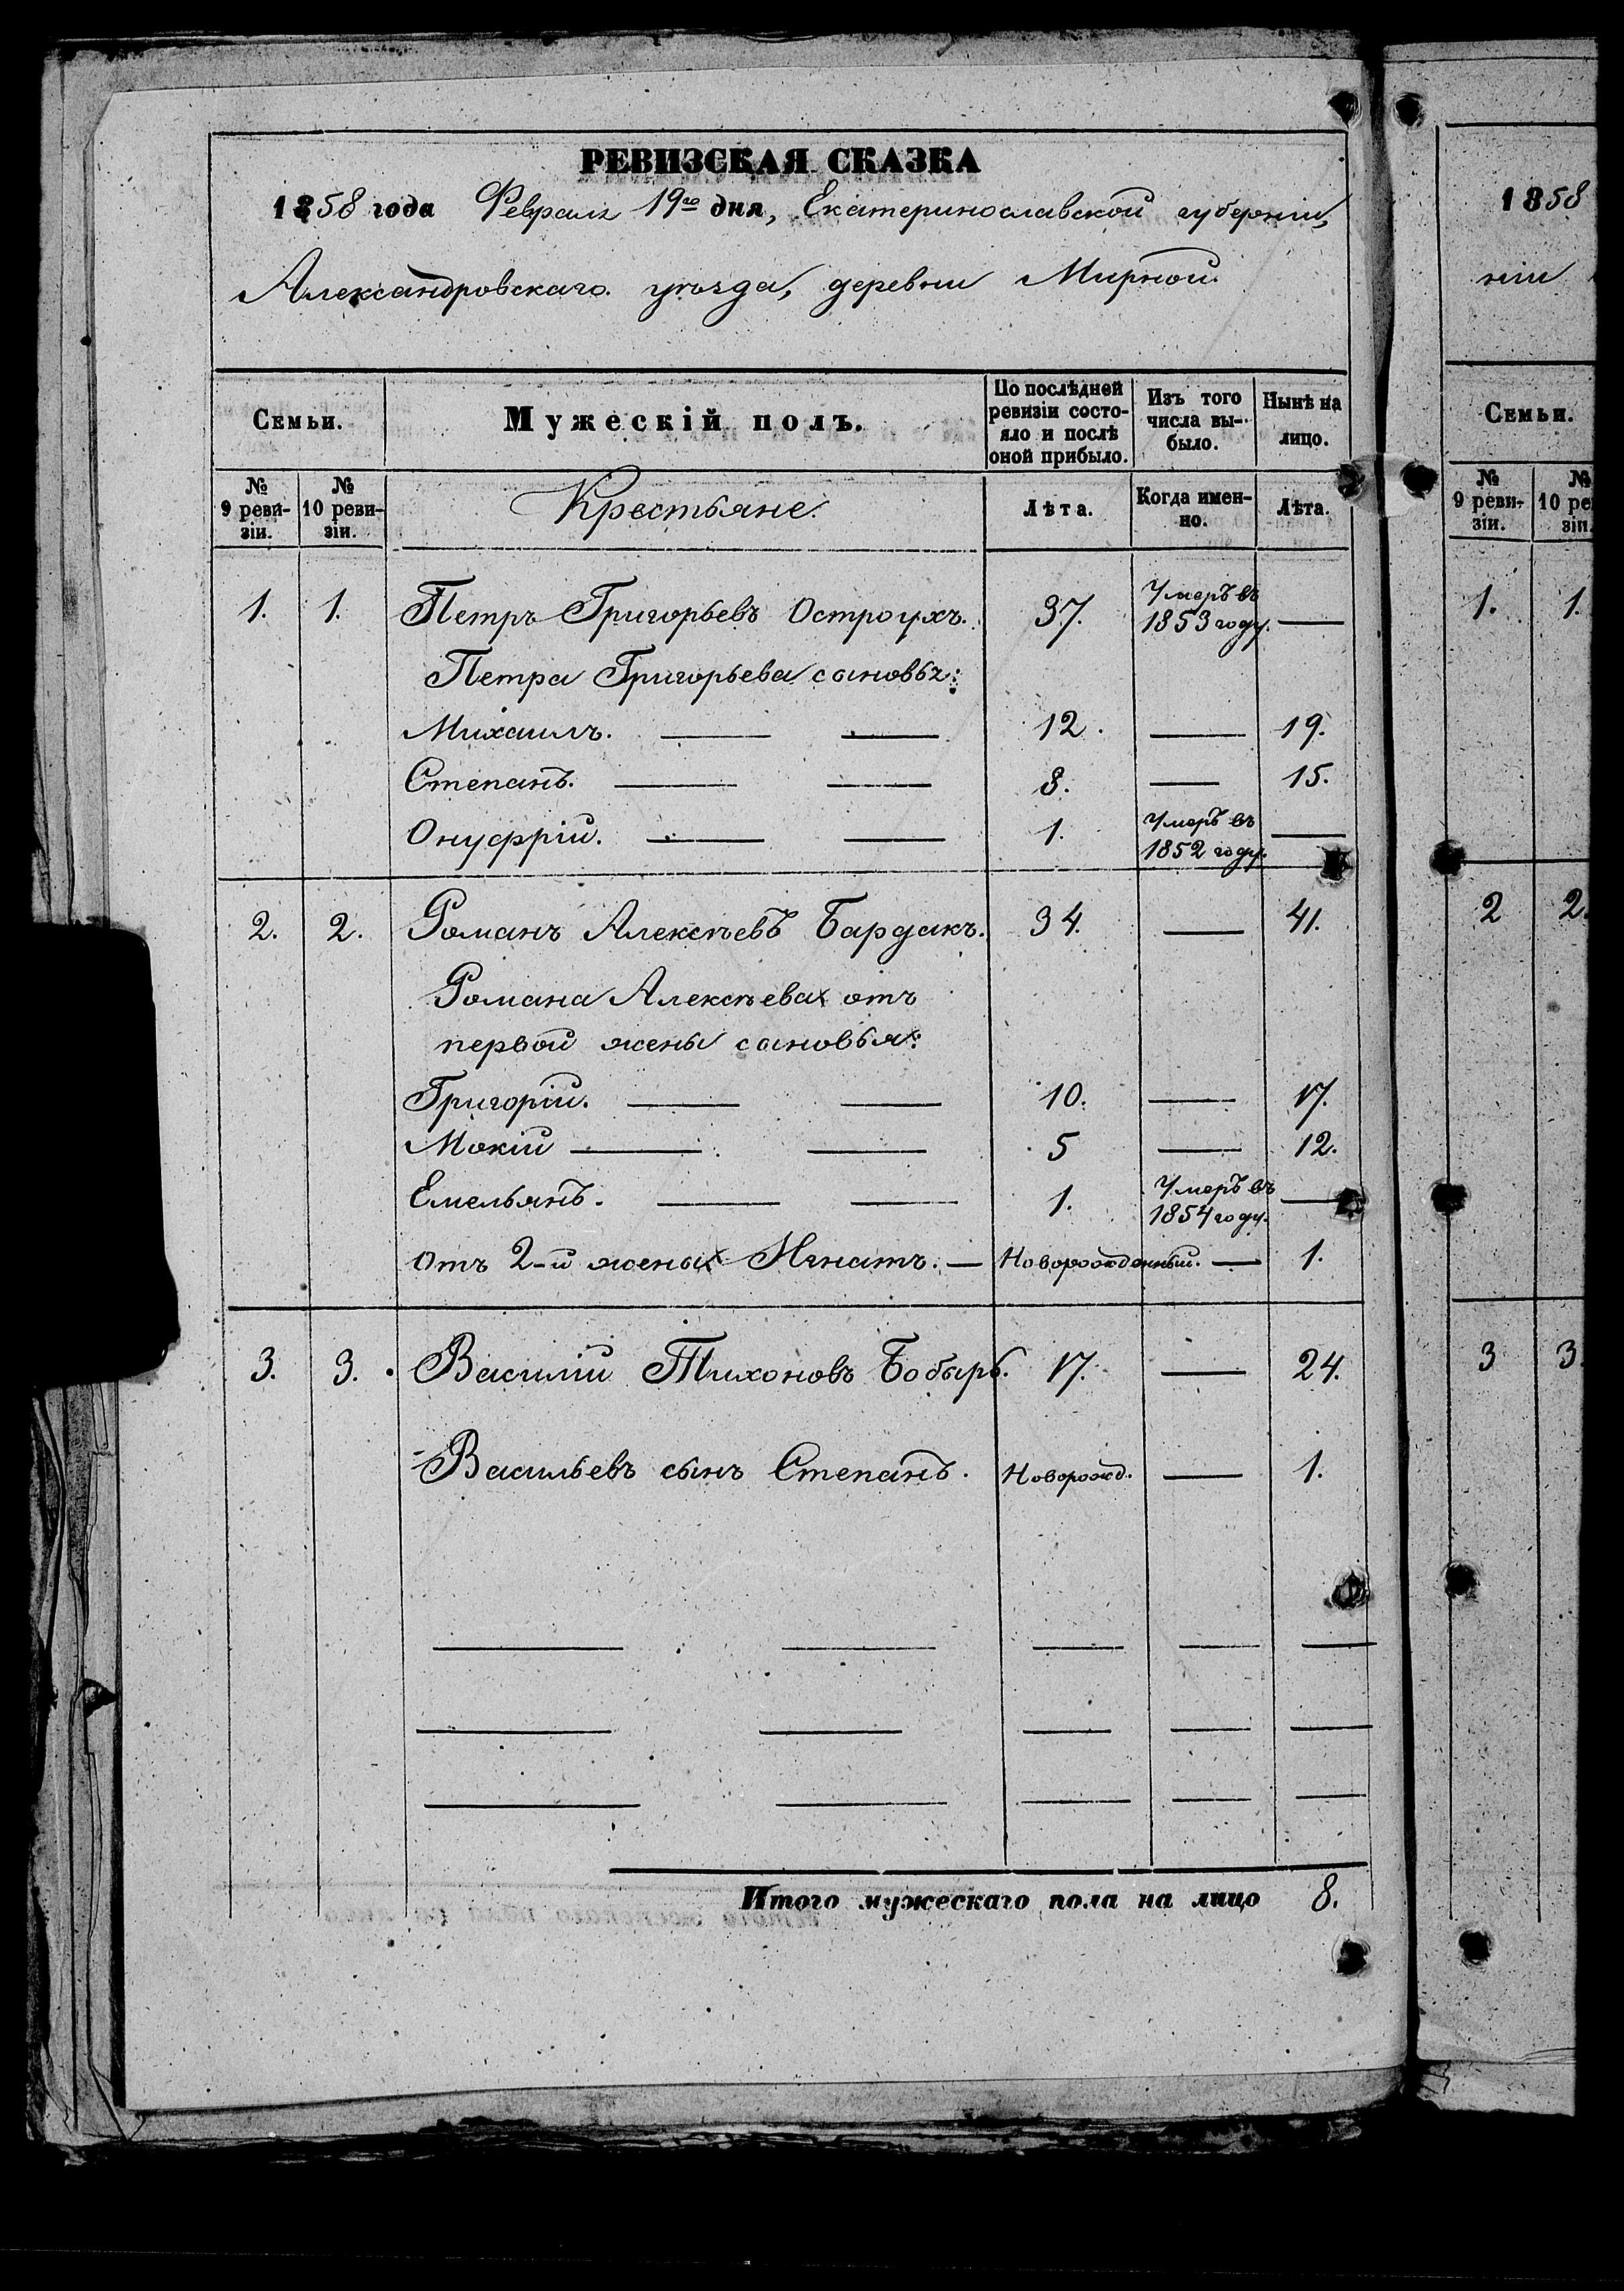 РЕВИЗСКАЯ СКАЗКА
1858 года Февраля 19го дня, Екатеринославской губернiи,
Александровскаго уѣзда, деревни Мирной.
Семьи.
Мужескiй полъ.
По послѣдней ревизiи состояло и послѣ оной прибыло.
Изъ того числа выбыло.
Нынѣ на лицо.
№ 9 ревизiи.
№ 10 ревизiи.
Крестьяне.
Лѣта.
Когда именно.
Лѣта.
1. 1. Петръ Григорьевъ Остроухъ. 37. Умеръ въ 1853 году. —
Петра Григорьева сыновья:
Михаилъ. — — 12. — 19.
Степанъ. — — 8. — 15.
Онуфрiй. — — 1. Умеръ въ 1852 году. —
2. 2. Романъ Алексѣевъ Бардакъ. 34. — 41.
Романа Алексѣева отъ
первой жены сыновья:
Григорiй. — — 10. — 17.
Мокiй — — 5 — 12.
Емельянъ. — — 1. Умеръ въ 1854 году. —
Отъ 2-й жены Игнатъ. — Новорожденный. — 1.
3. 3. Василiй Тихоновъ Бобырь. 17. — 24.
Васильевъ сынъ Степанъ. Новорожд. — 1.
Итого мужескаго пола на лицо 8.
1858
нiи
Семьи.
№ 9 ревизiи.
№ 10 ре
зiи.
1. 1.
2 2.
3 3.